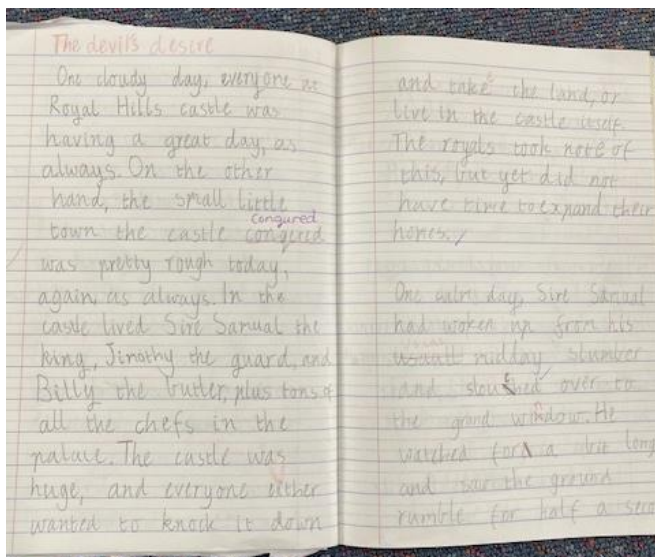 The devil's desire
One cloudy day, everyone at
Royal Hills castle was
having a great day, as
always. On the other
hand, the small little
congured
town the castle congered
was pretty rough today,
again, as always. In the
castle lived Sire Samual the
king, Jimothy the guard, and
Billy the butler, plus tons of
all the chefs in the
palace. The castle was
huge, and everyone either
wanted to knock it down
and take the land, or
live in the castle itself.
The royals took note of
this, but yet did not
have time to expand their
homes.
One calm day, Sire Samual
had woken up from his
usuall midday slumber
and over to
the grand window. He
watched for a bit long
and saw the ground
rumble for half a seco